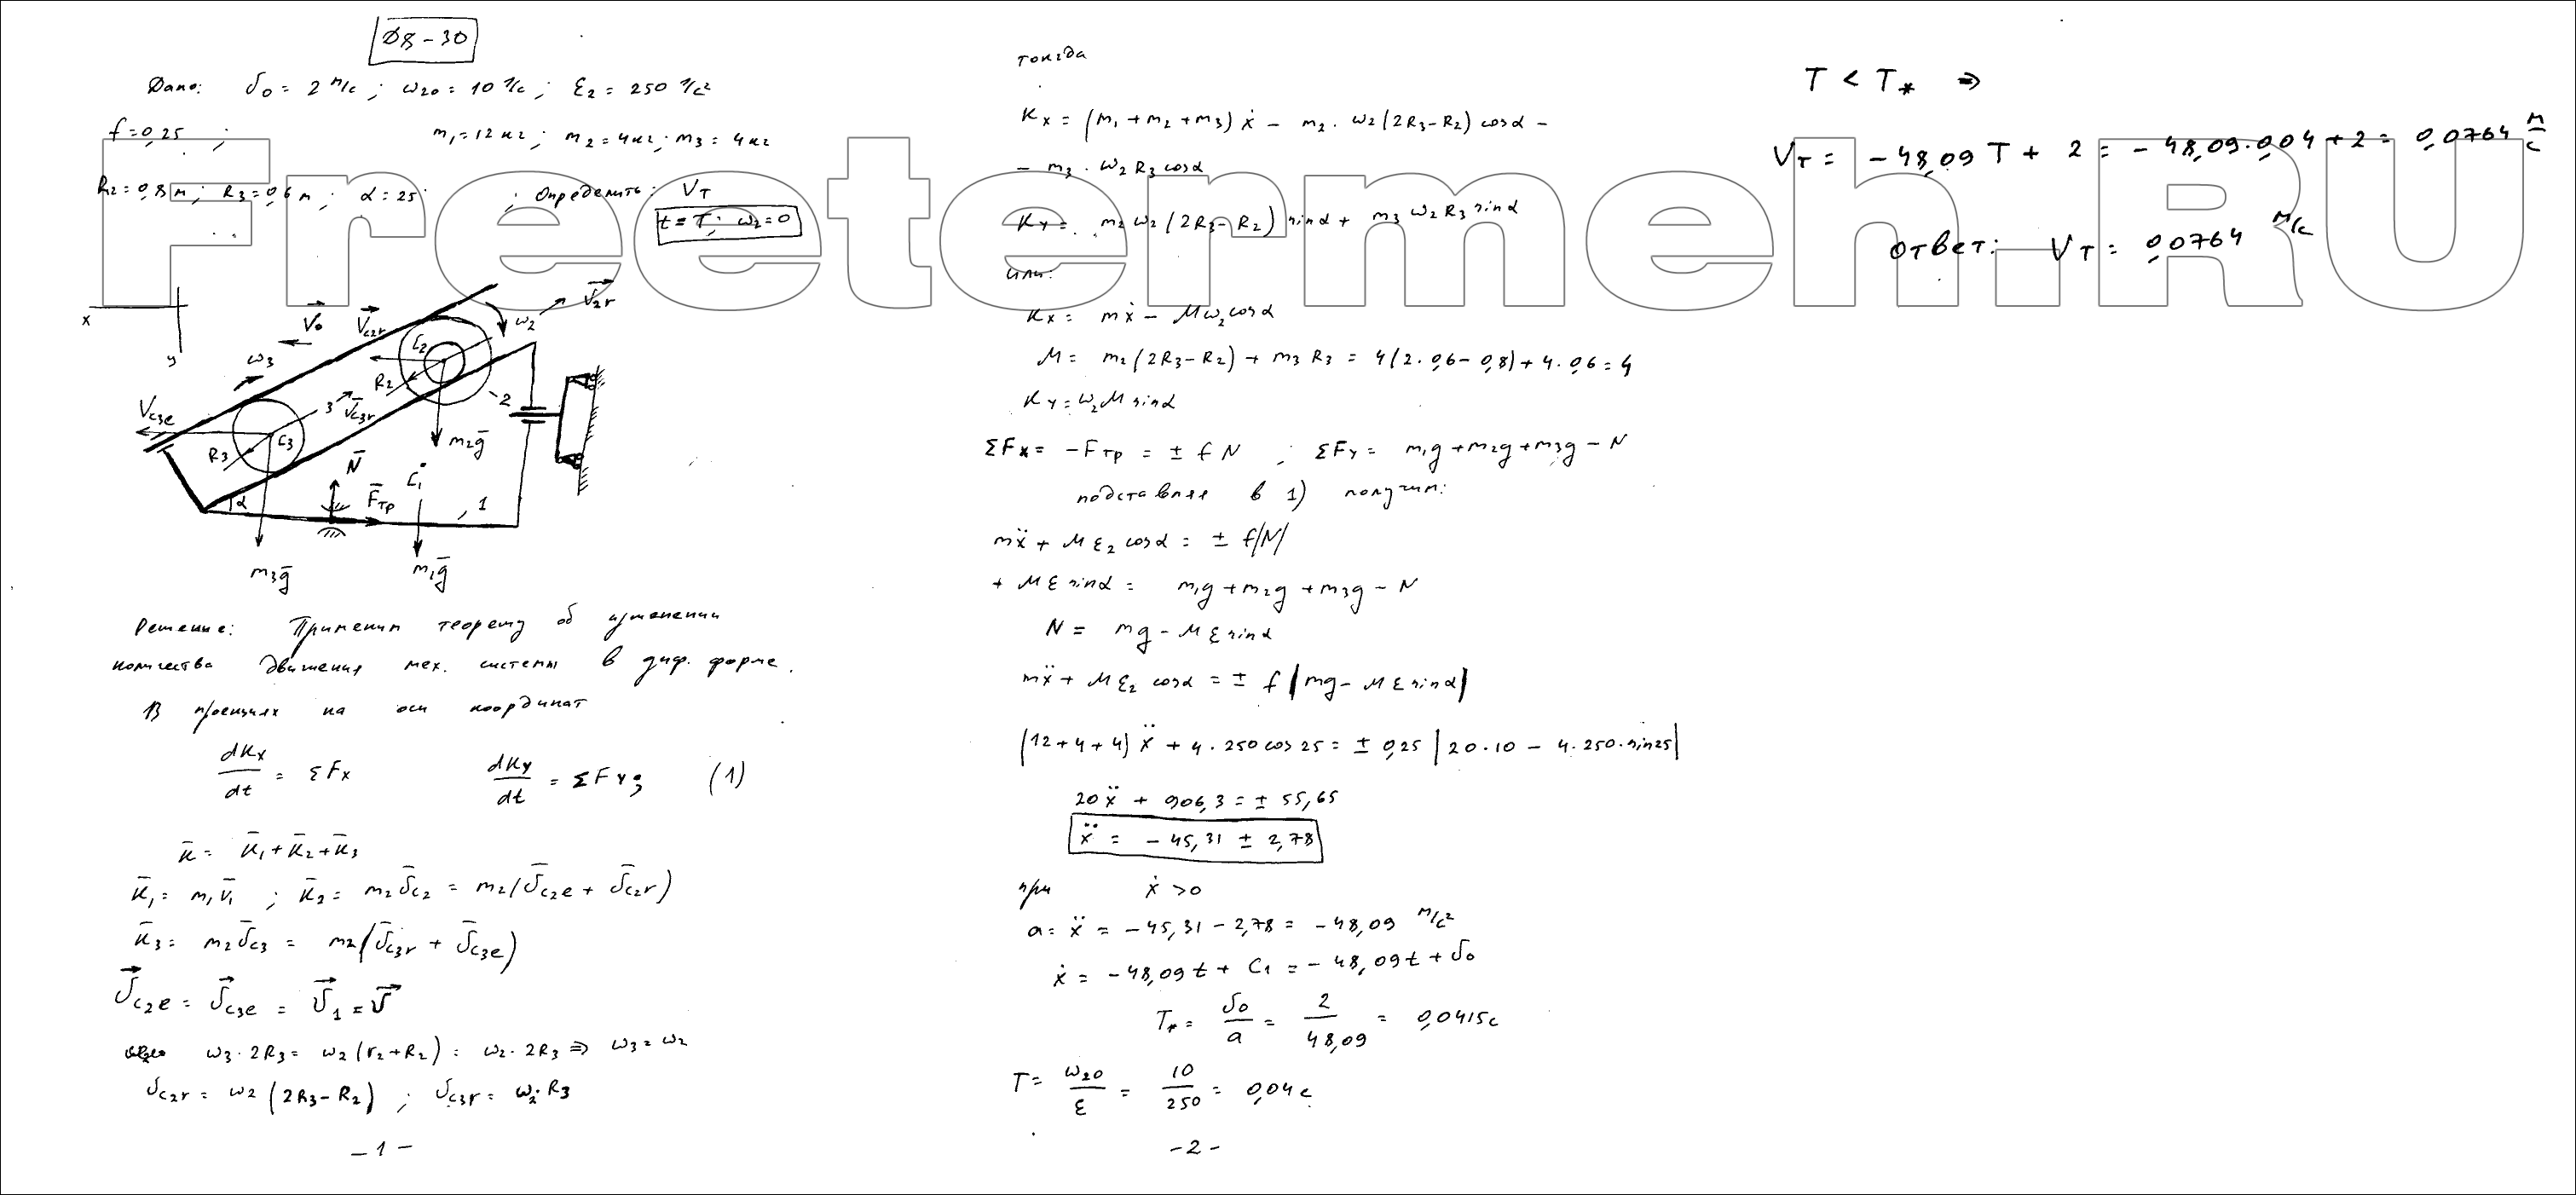 D8-30
Дано: υ₀ = 2 м/с ; ω₂₀ = 10 1/с ; ε₂ = 250 1/с²
f = 0,25 ; m₁ = 12 кг ; m₂ = 4 кг ; m₃ = 4 кг
R₂ = 0,8 м ; R₃ = 0,6 м ; α = 25° ; Определить: V_T
t = T; ω₂ = 0
x
y
ω₃
V̄₀
V̄c₂r
ω₂
V̄₂r
C₂
R₂
2
Vc₃e
3
V̄c₃r
C₃
R₃
m₂ḡ
N̄
C₁
F̄тр
α
1
m₃ḡ
m₁ḡ
Решение: Применим теорему об изменении
количества движения мех. системы в диф. форме.
В проекциях на оси координат
dKx/dt = ΣFx dKy/dt = ΣFy; (1)
K̄ = K̄₁ + K̄₂ + K̄₃
K̄₁ = m₁V̄₁ ; K̄₂ = m₂ῡc₂ = m₂(ῡc₂e + ῡc₂r)
K̄₃ = m₂ῡc₃ = m₂(ῡc₃r + ῡc₃e)
ῡc₂e = ῡc₃e = ῡ₁ = ῡ
ω₃·2R₃ = ω₂(r₂+R₂) = ω₂·2R₃ ⇒ ω₃ = ω₂
υc₂r = ω₂(2R₃-R₂) ; υc₃r = ω₂·R₃
-1-
тогда
Kx = (m₁+m₂+m₃)ẋ - m₂·ω₂(2R₃-R₂)cosα -
- m₃·ω₂R₃cosα
Ky = m₂ω₂(2R₃-R₂)sinα + m₃ω₂R₃sinα
или:
Kx = mẋ - Mω₂cosα
M = m₂(2R₃-R₂) + m₃R₃ = 4(2·0,6-0,8)+4·0,6 = 4
Ky = ω₂M sinα
ΣFx = -Fтр = ± fN ; ΣFy = m₁g+m₂g+m₃g-N
подставляя в 1) получим:
mẍ + Mε₂cosα = ± f|N|
+ Mε sinα = m₁g+m₂g+m₃g-N
N = mg - Mε sinα
mẍ + Mε₂ cosα = ± f |mg - Mε sinα|
(12+4+4)ẍ + 4·250 cos25 = ± 0,25 |20·10 - 4·250·sin25|
20ẍ + 906,3 = ± 55,65
ẍ = -45,31 ± 2,78
при ẋ > 0
a = ẍ = -45,31 - 2,78 = -48,09 м/с²
ẋ = -48,09t + C₁ = -48,09t + υ₀
T* = υ₀/a = 2/48,09 = 0,0415с
T = ω₂₀/ε = 10/250 = 0,04 с
-2-
T < T* ⇒
V_T = -48,09 T + 2 = -48,09·0,04 + 2 = 0,0764 м/с
ответ: V_T = 0,0764 м/с
Freetermeh.RU